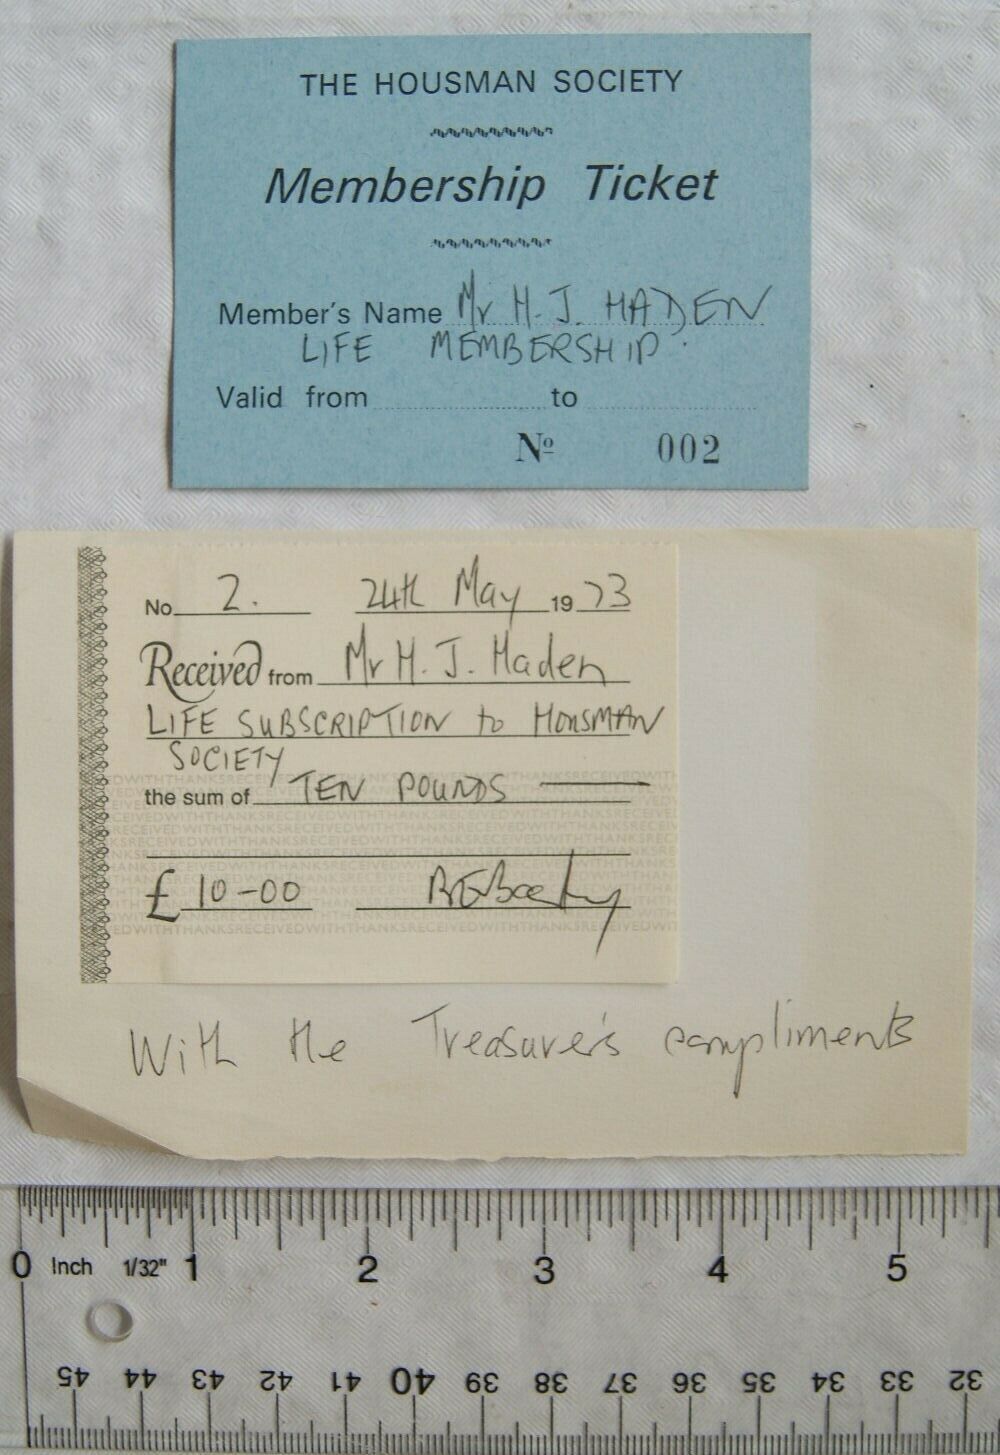 THE HOUSMAN SOCIETY
Membership Ticket
Member's Name Mr H. J. HADEN
LIFE MEMBERSHIP.
Valid from to
Nº 002
No 2. 24th May 19 73
Received from Mr H. J. Haden
LIFE SUBSCRIPTION to HOUSMAN
SOCIETY
the sum of TEN POUNDS
£ 10-00
With the Treasurer's compliments
0 Inch 1/32" 1 2 3 4 5
45 44 43 42 41 40 39 38 37 36 35 34 33 32